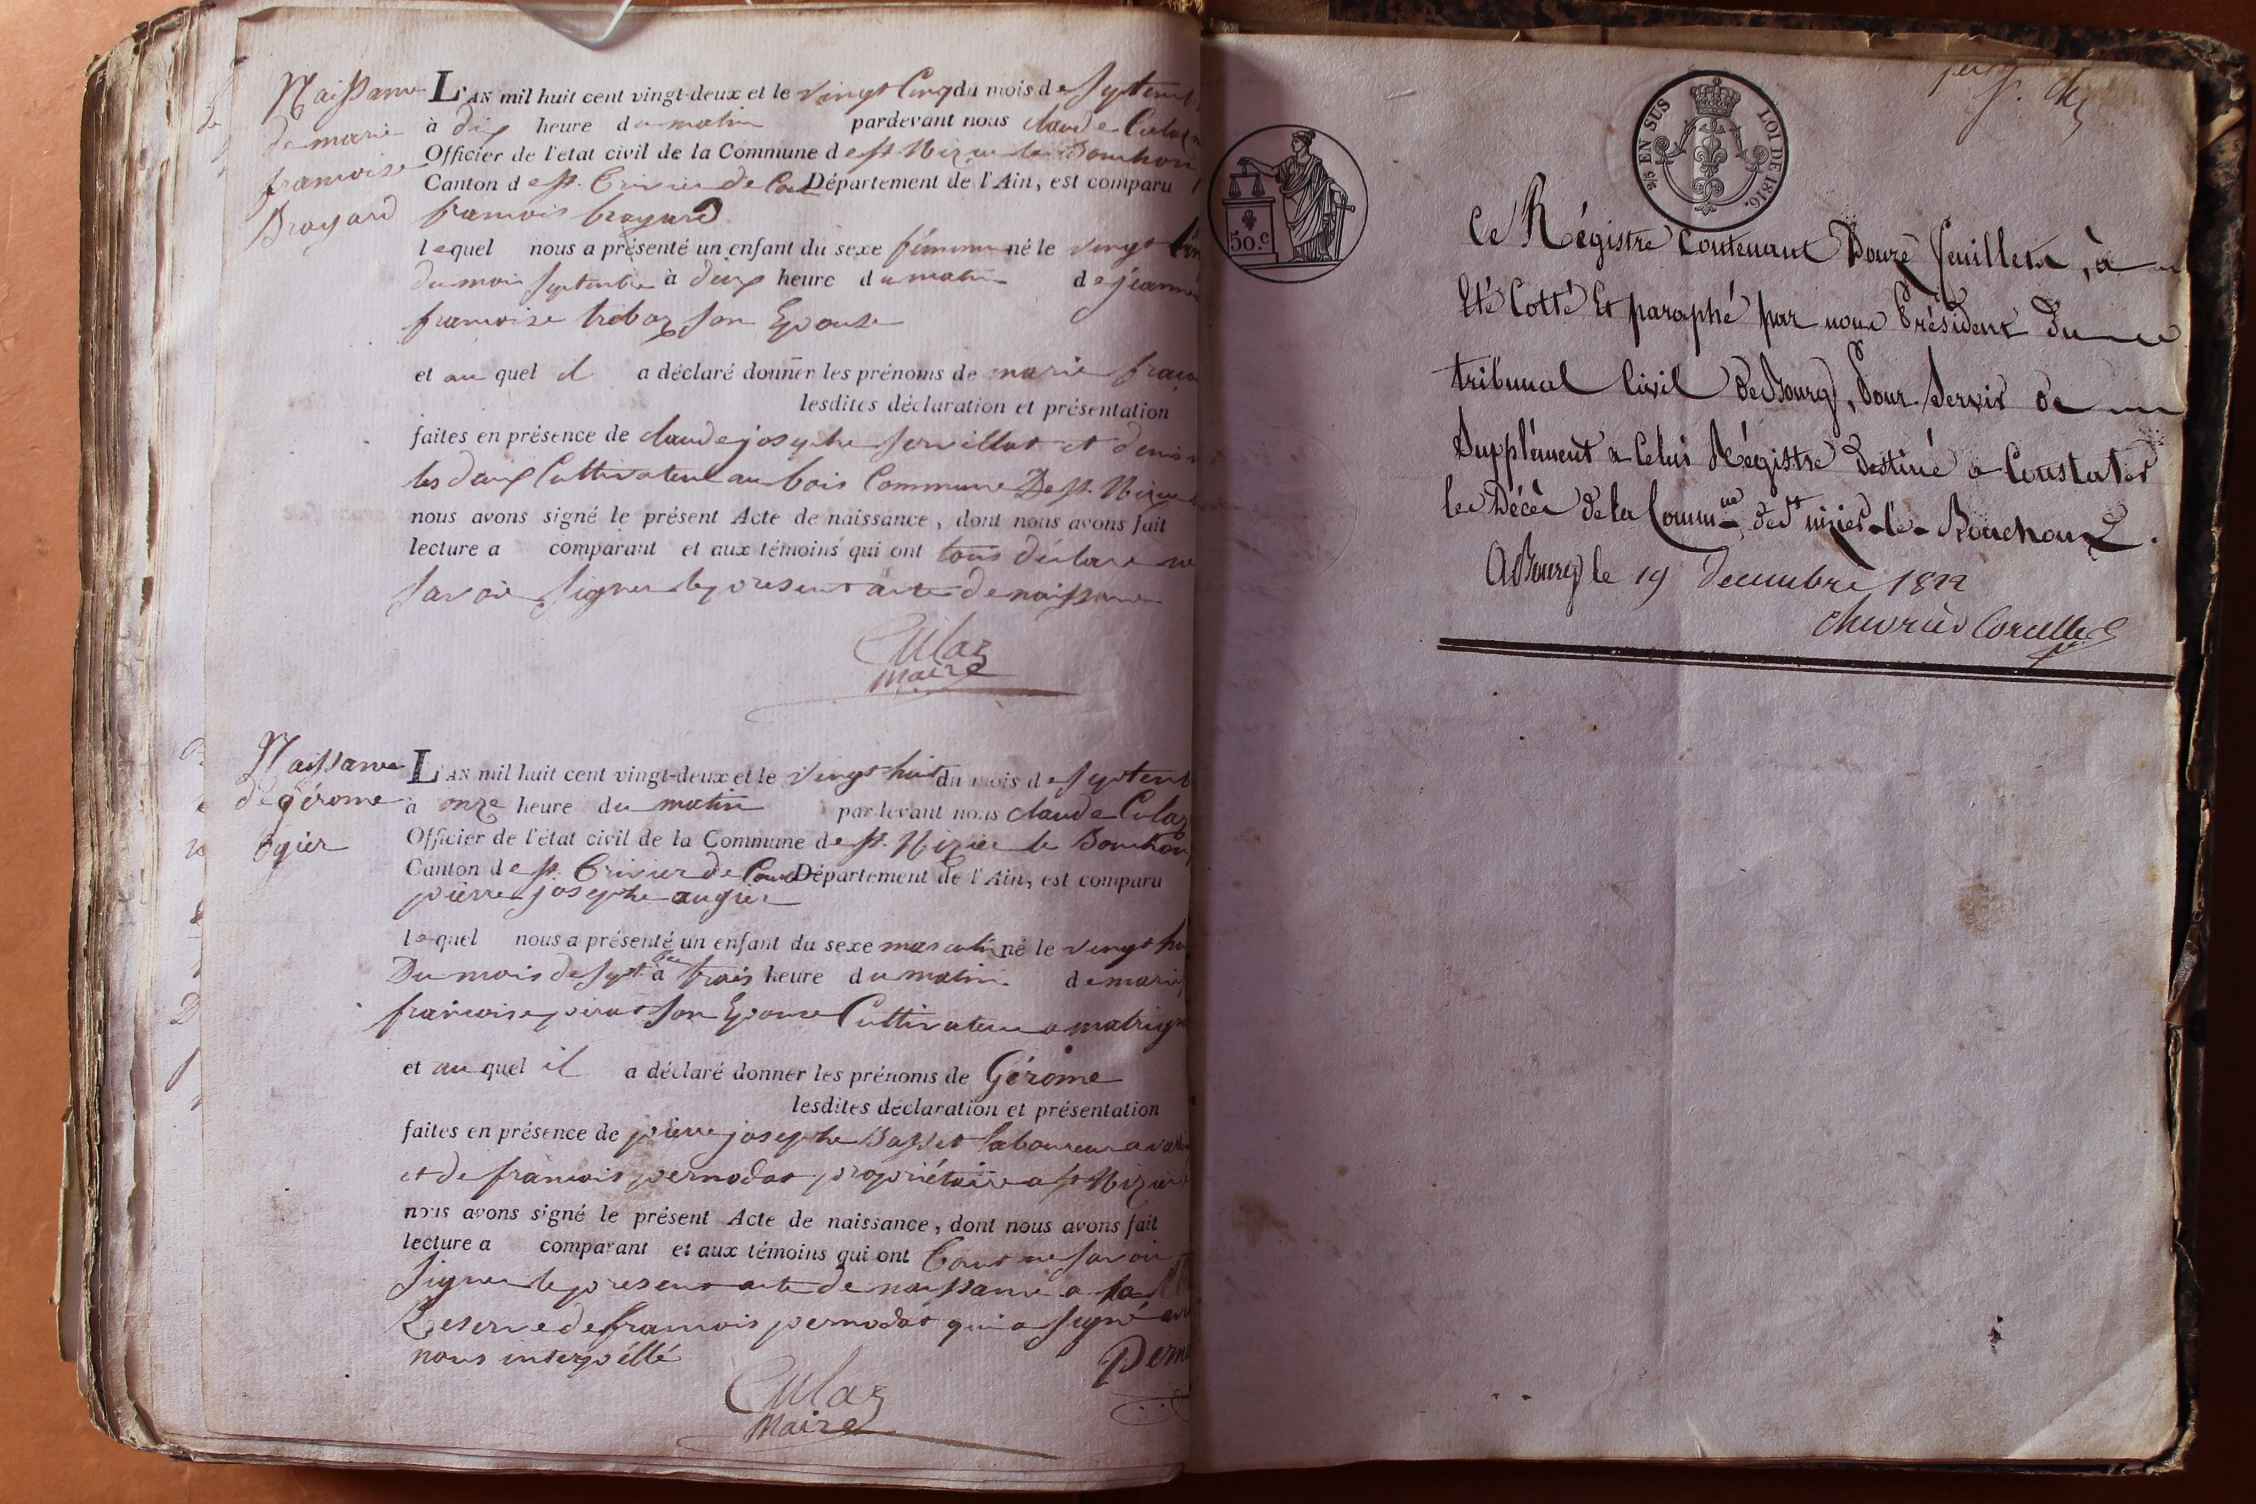 Naissance
de marie
francoise
Broyard
L'AN mil huit cent vingt-deux et le vingt Cinq du mois de Septem
à dix heure du matin pardevant nous claude Culaz
Officier de l'état civil de la Commune de St. Nizier le Bouchou
Canton de St. Trivier de Cour Département de l'Ain, est comparu
francois broyard
lequel nous a présenté un enfant du sexe féminin né le vingt
du mois septembre à deux heure du matin de jeanne
francoise trobaz son Epouse
et au quel il a déclaré donner les prénoms de marie franc
lesdites déclaration et présentation
faites en présence de claude josephe servillat et denis
les deux Cultivateur au bois Commune De St. Nizier
nous avons signé le présent Acte de naissance, dont nous avons fait
lecture a comparant et aux témoins qui ont tous déclaré ne
savoir signer le present acte de naissance
Culaz
Maire
Naissance
de gérome
ogier
L'AN mil huit cent vingt-deux et le vingt huit du mois de Septem
à onze heure du matin pardevant nous claude Culaz
Officier de l'état civil de la Commune de St. Nizier le Bouchou
Canton de St. Trivier de Cour Département de l'Ain, est comparu
pierre josephe augier
lequel nous a présenté un enfant du sexe masculin né le vingt hu
Du mois de Sept.bre à trois heure du matin de marie
francoise son Epouse Cultivateur a
et au quel il a déclaré donner les prénoms de Gérome
lesdites déclaration et présentation
faites en présence de pierre josephe Basset laboureur a
et de francois pernodat propriétaire a St Nizier
nous avons signé le présent Acte de naissance, dont nous avons fait
lecture a comparant et aux témoins qui ont tous ne savoir
signer le present acte de naissance a la
Reserve de francois pernodat qui a signé
nous interpéllé
Pern
Culaz
Maire
50.c
2/5 EN SUS
LOI DE 1816.
Ce Régistre Contenant Douze feuillets, à
Eté Cotté Et paraphé par nous Président Du
tribunal Civil de Bourg, Pour Servir de
Supplément a Celui Régistre Destiné a Constater
les Décès de la Comm.ne de St nizier-le-Bouchoux.
A Bourg le 19 decembre 1822
Chevrier Corcelles